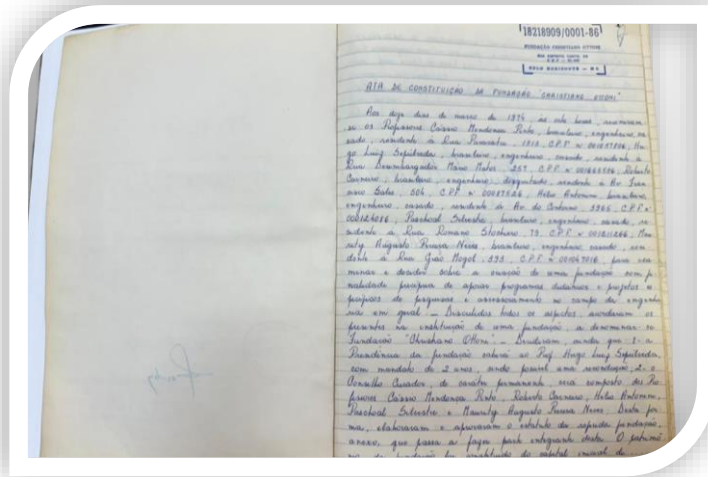 18218909/0001-86
FUNDAÇÃO CHRISTIANO OTTONI
BELO HORIZONTE - MG
ATA DE CONSTITUIÇÃO DA FUNDAÇÃO "CHRISTIANO OTTONI"
Aos doze dias de março de 1974, às sete horas, reuniram-
se os Professores Cássio Mendonça Pinto, brasileiro, engenheiro, ca
sado, residente à Rua, C.P.F. nº, Hu
go Luiz Sepúlveda, brasileiro, engenheiro, casado, residente à
Rua Desembargador Mário Matos, 257, C.P.F., Roberto
Carneiro, brasileiro, engenheiro, desquitado, residente à Av. Fran
cisco Sales, C.P.F. nº, Hélio Antonini, brasileiro,
engenheiro, casado, residente à Av. do Contorno, C.P.F. nº
Paschoal Silvestre, brasileiro, engenheiro, casado, re
sidente à Rua Romano Stochiero, C.P.F. nº, Mau
rity Augusto Neves, brasileiro, engenheiro, casado, resi
dente à Rua Grão Mogol, C.P.F. nº, para exa
minar e decidir sobre a criação de uma fundação com fi
nalidade precípua de apoiar programas didáticos e projetos es
pecíficos de pesquisas e assessoramento no campo da engenha
ria em geral. Discutidos todos os aspectos, acordaram os
presentes na instituição de uma fundação, a denominar-se
Fundação "Christiano Ottoni". Decidiram, ainda que: 1- a
Presidência da fundação caberá ao Prof. Hugo Luiz Sepúlveda,
com mandato de 2 anos, sendo possível uma recondução; 2- o
Conselho Curador, de caráter permanente, será composto dos Pro
fessores Cássio Mendonça Pinto, Roberto Carneiro, Hélio Antonini,
Paschoal Silvestre e Maurity Augusto Neves. Desta for
ma, elaboraram e aprovaram o estatuto da referida fundação,
anexo, que passa a fazer parte integrante desta. O patrimô
nio da fundação foi constituído do capital inicial de